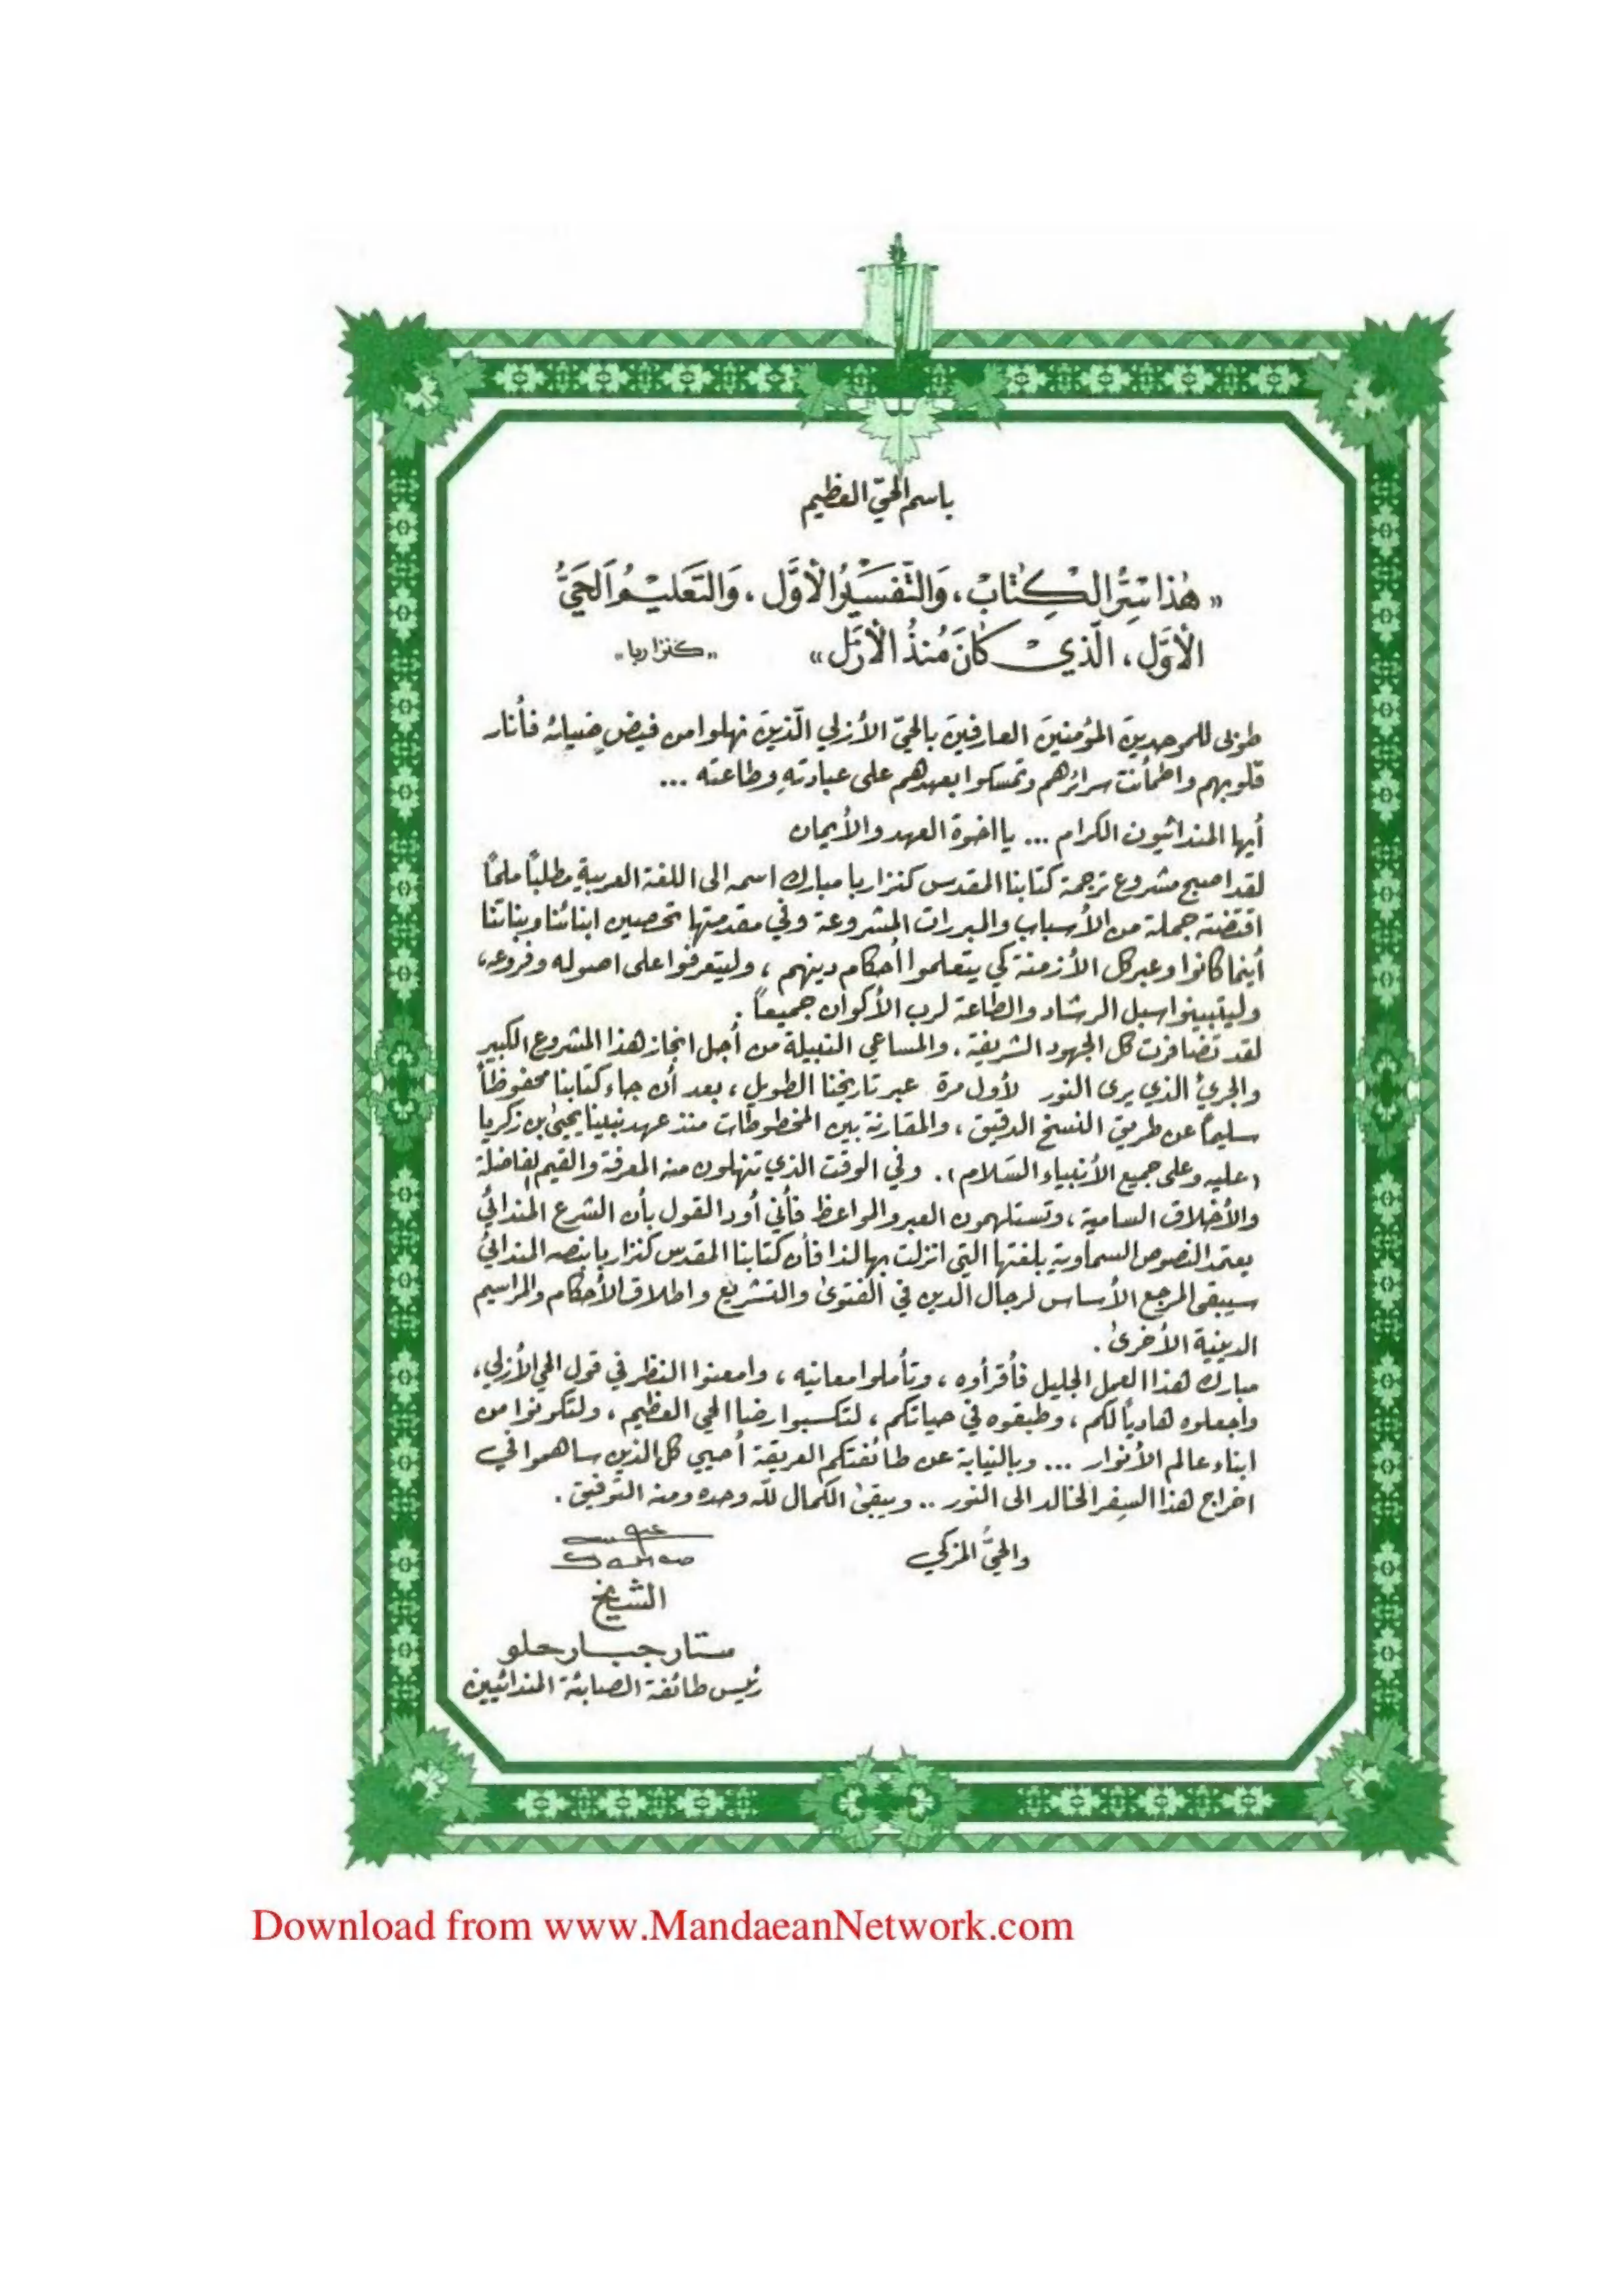 باسم الحيّ العظيم
« هٰذا سِرُّ الْكِتٰابْ، وَالتَّفسَيرُ الْأوَّل، وَالتَعَليْمُ اَلحَيَّ
الْأوَّل، الَّذيْ كانَ مُنذُ الْأزَل» „كنزا ربا„
طوبى للموحدينَ المؤمنينَ العارفينَ بالحيّ الأزلي الّذينَ نهلوا من فيضِ ضيائه فأنار
قلوبهم واطمأنت سرائرهم وتمسكوا بعهدهم على عبادتهِ وطاعته ...
أيها المندائيون الكرام ... يا اخوة العهد والأيمان
لقد اصبح مشروع ترجمة كتابنا المقدس كنزا ربا مبارك اسمه الى اللغة العربيةِ مطلباً ملحاً
اقتضته جملة من الأسباب والمبررات المشروعة وفي مقدمتها تحصين ابنائنا وبناتنا
أينما كانوا وعبر كل الأزمنة كي يتعلموا أحكام دينهم ، وليتعرفوا على اصوله وفروعه،
وليتبينوا سبل الرشاد والطاعة لرب الأكوان جميعاً .
لقد تضافرت كل الجهود الشريفة، والمساعي النبيلة من أجل انجاز هذا المشروع الكبير
والجريْ الذي يرى النور لأول مرة عبر تاريخنا الطويل ، بعد أن جاء كتابنا محفوظاً
سليماً عن طريق النسخ الدقيق ، والمقارنة بين المخطوطات منذ عهد نبينا يحيىٰ بن زكريا
(عليه وعلى جميع الأنبياء السّلام). وفي الوقت الذي تنهلون منه المعرفة والقيم الفاضلة
والأخلاق السامية ، وتستلهمون العبر والمواعظ فأني أود القول بأن الشرع المندائي
يعتمد النصوص السماوية بلغتها التي انزلت بها لذا فأن كتابنا المقدس كنزا ربا بنصه المندائي
سيبقى المرجع الأساس لرجال الّدين في الفتوىٰ والتشريع واطلاق الأحكام والمراسيم
الدينية الأخرىٰ .
مبارك هذا العمل الجليل فأقرأوه ، وتأملوا معانيه ، وامعنوا النظر في قول الحي الأزلي ،
واجعلوه هادياً لكم ، وطبقوه في حياتكم ، لتكسبوا رضا الحي العظيم ، ولتكونوا من
ابناء عالم الأنوار ... وبالنيابة عن طائفتكم العريقة أحيي كل الذين ساهموا في
اخراج هذا السِفر الخالد الى النور .. ويبقىٰ الكمال للّه وحده ومنه التوفيق .
والحيُّ المزكي
الشيخ
ستار جبار حلو
رئيس طائفة الصابئة المندائيين
Download from www.MandaeanNetwork.com